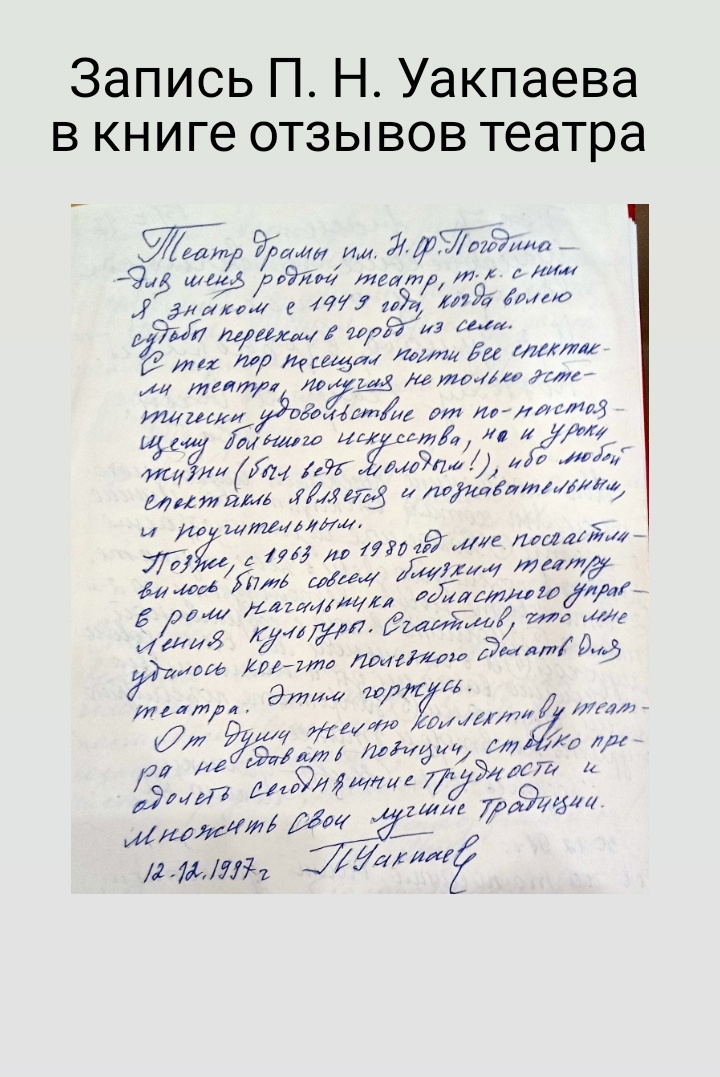 Запись П. Н. Уакпаева
в книге отзывов театра
Театр драмы им. Н.Ф.Погодина —
– для меня родной театр, т.к. с ним
я знаком с 1949 года, когда волею
судьбы переехал в город из села.
С тех пор посещал почти все спектак-
ли театра, получая не только эсте-
тически удовольствие от по-настоя-
щему большого искусства, но и уроки
жизни (был ведь молодым!), ибо любой
спектакль является и познавательным,
и поучительным.
Позже, с 1963 по 1980 год мне посчастли-
вилось быть совсем близким театру
в роли начальника областного управ-
ления культуры. Счастлив, что мне
удалось кое-что полезного сделать для
театра. Этим горжусь.
От души желаю коллективу теат-
ра не сдавать позиции, стойко пре-
одолеть сегодняшние трудности и
множить свои лучшие традиции.
12.12.1997г ПУакпаев